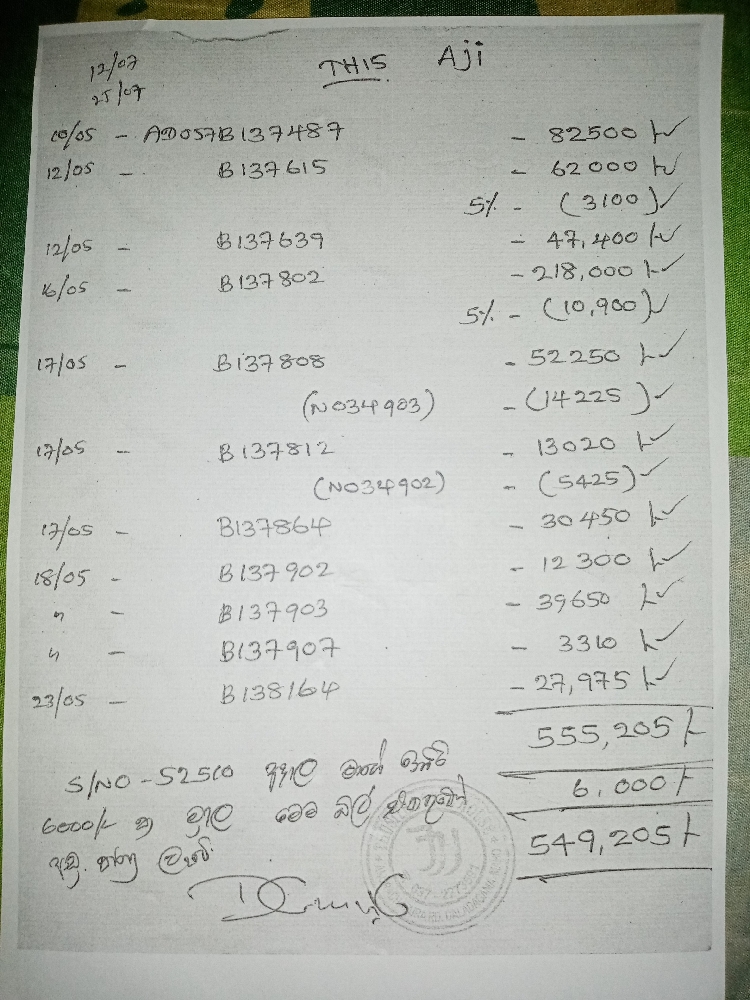 12/07
25/07
THIS Aji
10/05 - AD057B137487 - 82500/-
12/05 - B137615 - 62000/-
5% - (3100)
12/05 - B137639 - 47,400/-
16/05 - B137802 - 218,000/-
5% - (10,900)
17/05 - B137808 - 52250/-
(N034903) - (14225)
17/05 - B137812 - 13020/-
(N034902) - (5425)
17/05 - B137864 - 30450/-
18/05 - B137902 - 12300/-
" - B137903 - 39650/-
" - B137907 - 3310/-
23/05 - B138164 - 27,975/-
555,205/-
S/NO - S2510 අදාල
6,000/-
6000/- ක මුදල මෙම බිල්
549,205/-
අඩු කරන